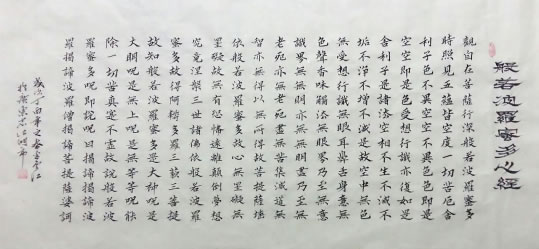 般若波羅蜜多心經
觀自在菩薩行深般若波羅蜜多
時照見五蘊皆空度一切苦厄舍
利子色不異空空不異色色即是
空空即是色受想行識亦復如是
舍利子是諸法空相不生不滅不
垢不淨不增不減是故空中無色
無受想行識無眼耳鼻舌身意無
色聲香味觸法無眼界乃至無意
識界無無明亦無無明盡乃至無
老死亦無老死盡無苦集滅道無
智亦無得以無所得故菩提薩埵
依般若波羅蜜多故心無罣礙無
罣礙故無有恐怖遠離顛倒夢想
究竟涅槃三世諸佛依般若波羅
蜜多故得阿耨多羅三藐三菩提
故知般若波羅蜜多是大神呪是
大明呪是無上呪是無等等呪能
除一切苦真實不虛故說般若波
羅蜜多呪即說呪曰揭諦揭諦波
羅揭諦波羅僧揭諦菩提薩婆訶
歲次丁酉年之春